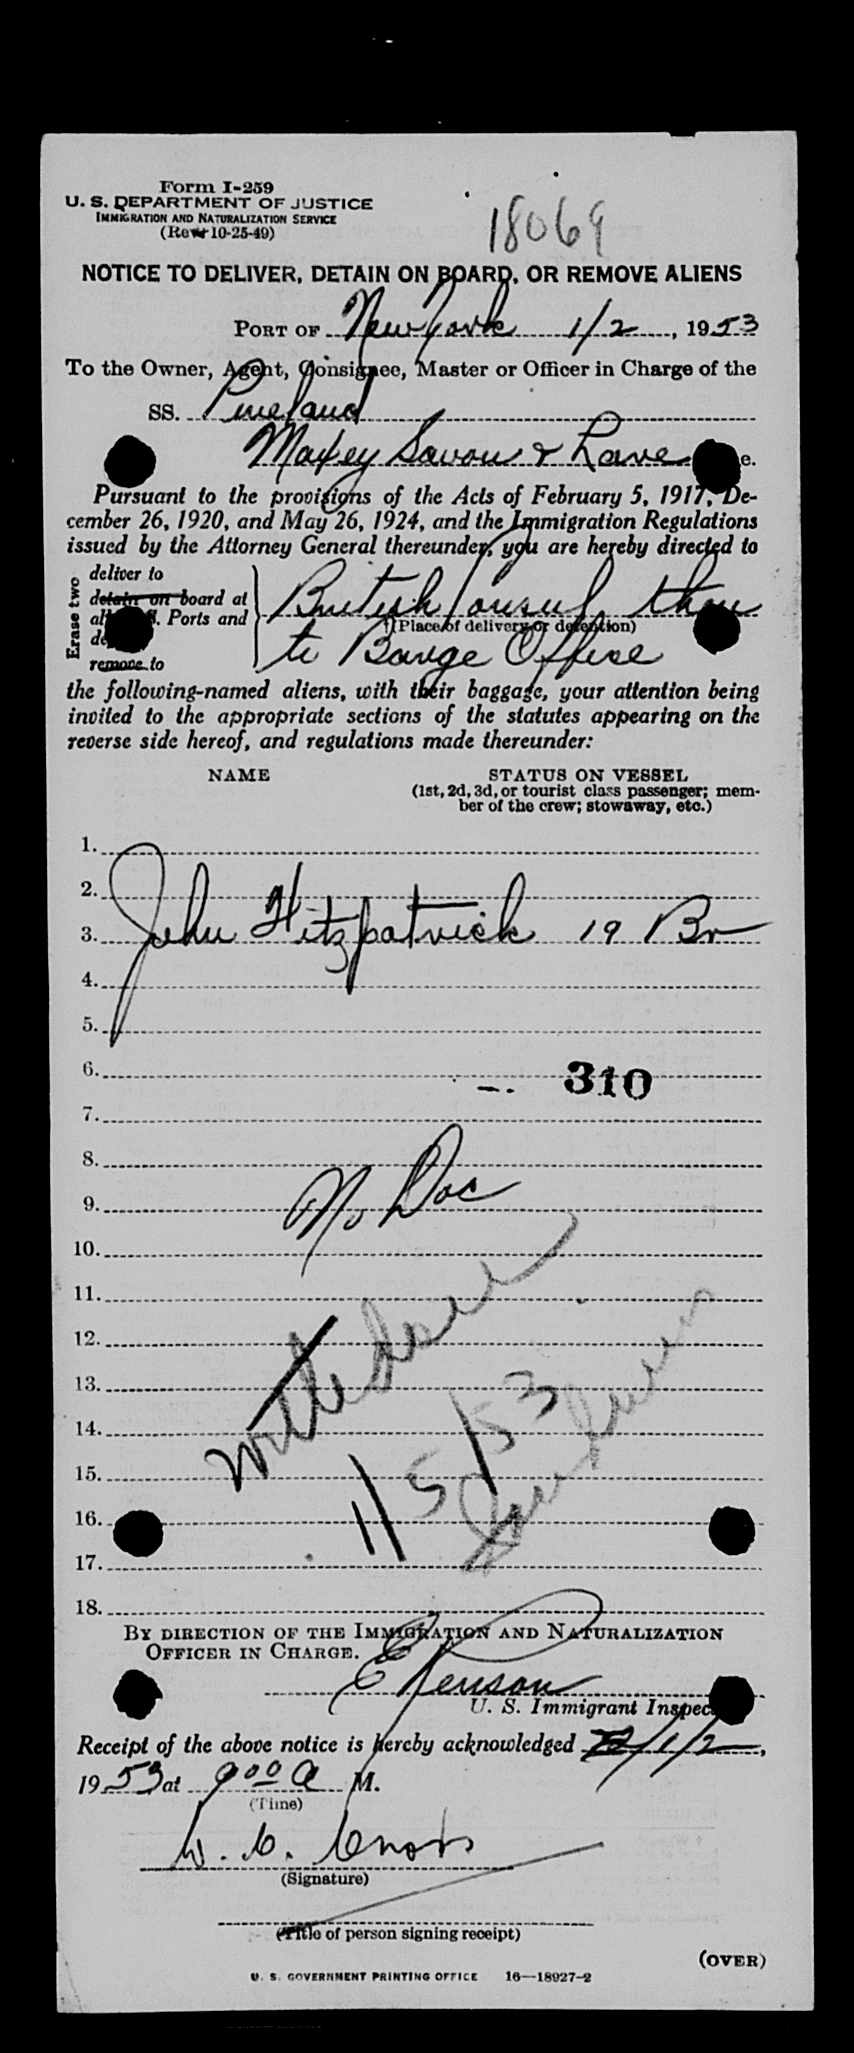 Form I-259
U. S. DEPARTMENT OF JUSTICE
IMMIGRATION AND NATURALIZATION SERVICE
(Rev. 10-25-49)
18069
NOTICE TO DELIVER, DETAIN ON BOARD, OR REMOVE ALIENS
PORT OF New York 1/2, 1953
To the Owner, Agent, Consignee, Master or Officer in Charge of the
SS. Pineland
e.
Pursuant to the provisions of the Acts of February 5, 1917, De-
cember 26, 1920, and May 26, 1924, and the Immigration Regulations
issued by the Attorney General thereunder, you are hereby directed to
Erase two
deliver to
detain on board at
Ports and
remove to
British Consul then
(Place of delivery or detention)
to Barge Office
the following-named aliens, with their baggage, your attention being
invited to the appropriate sections of the statutes appearing on the
reverse side hereof, and regulations made thereunder:
NAME STATUS ON VESSEL
(1st, 2d, 3d, or tourist class passenger; mem-
ber of the crew; stowaway, etc.)
1.
2.
3. John Fitzpatrick 19 Br
4.
5.
6. 310
7.
8.
9. No Doc
10.
11.
12.
13.
14.
15.
1/5/53
16.
17.
18.
BY DIRECTION OF THE IMMIGRATION AND NATURALIZATION
OFFICER IN CHARGE.
U. S. Immigrant Inspec
Receipt of the above notice is hereby acknowledged 1/2,
1953 at 9 00 A M.
(Time)
(Signature)
(Title of person signing receipt)
(OVER)
U. S. GOVERNMENT PRINTING OFFICE 16—18927-2